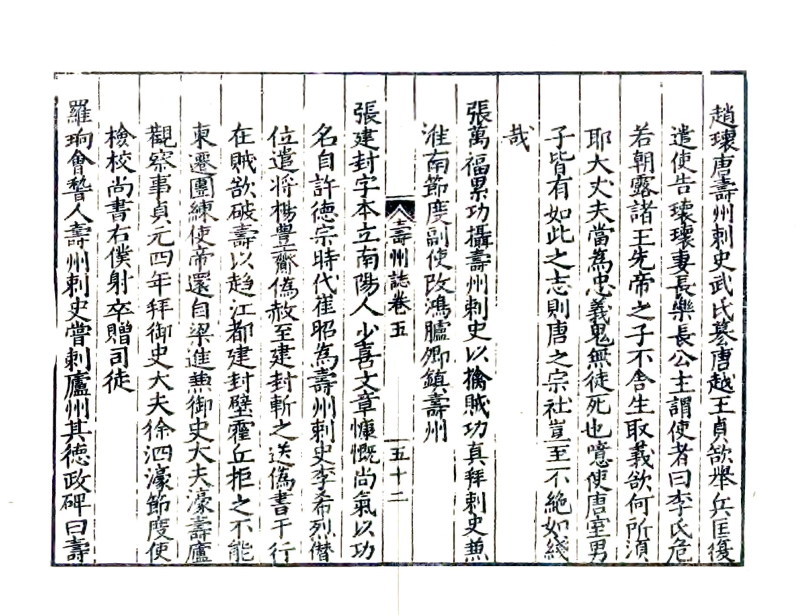 趙瓌唐壽州刺史武氏簒唐越王貞欲舉兵匡復
遣使告瓌瓌妻長樂長公主謂使者曰李氏危
若朝露諸王先帝之子不舎生取義欲何所湏
耶大丈夫當為忠義鬼無徒死也噫使唐室男
子皆有如此之志則唐之宗社豈至不絶如綫
哉
張萬福累功攝壽州刺史以擒賊功真拜刺史兼
淮南節度副使改鴻臚卿鎮壽州
壽州誌卷五
五十二
張建封字本立南陽人少喜文章慷慨尚氣以功
名自許德宗時代崔昭為壽州刺史李希烈僣
位遣將楊豐齎偽赦至建封斬之送偽書于行
在賊欲破壽以趋江都建封壁霍丘拒之不能
東遷團練使帝還自梁進兼御史大夫濠壽廬
觀察事貞元四年拜御史大夫徐泗濠節度使
檢校尚書右僕射卒贈司徒
羅珦會稽人壽州刺史嘗刺廬州其德政碑曰壽